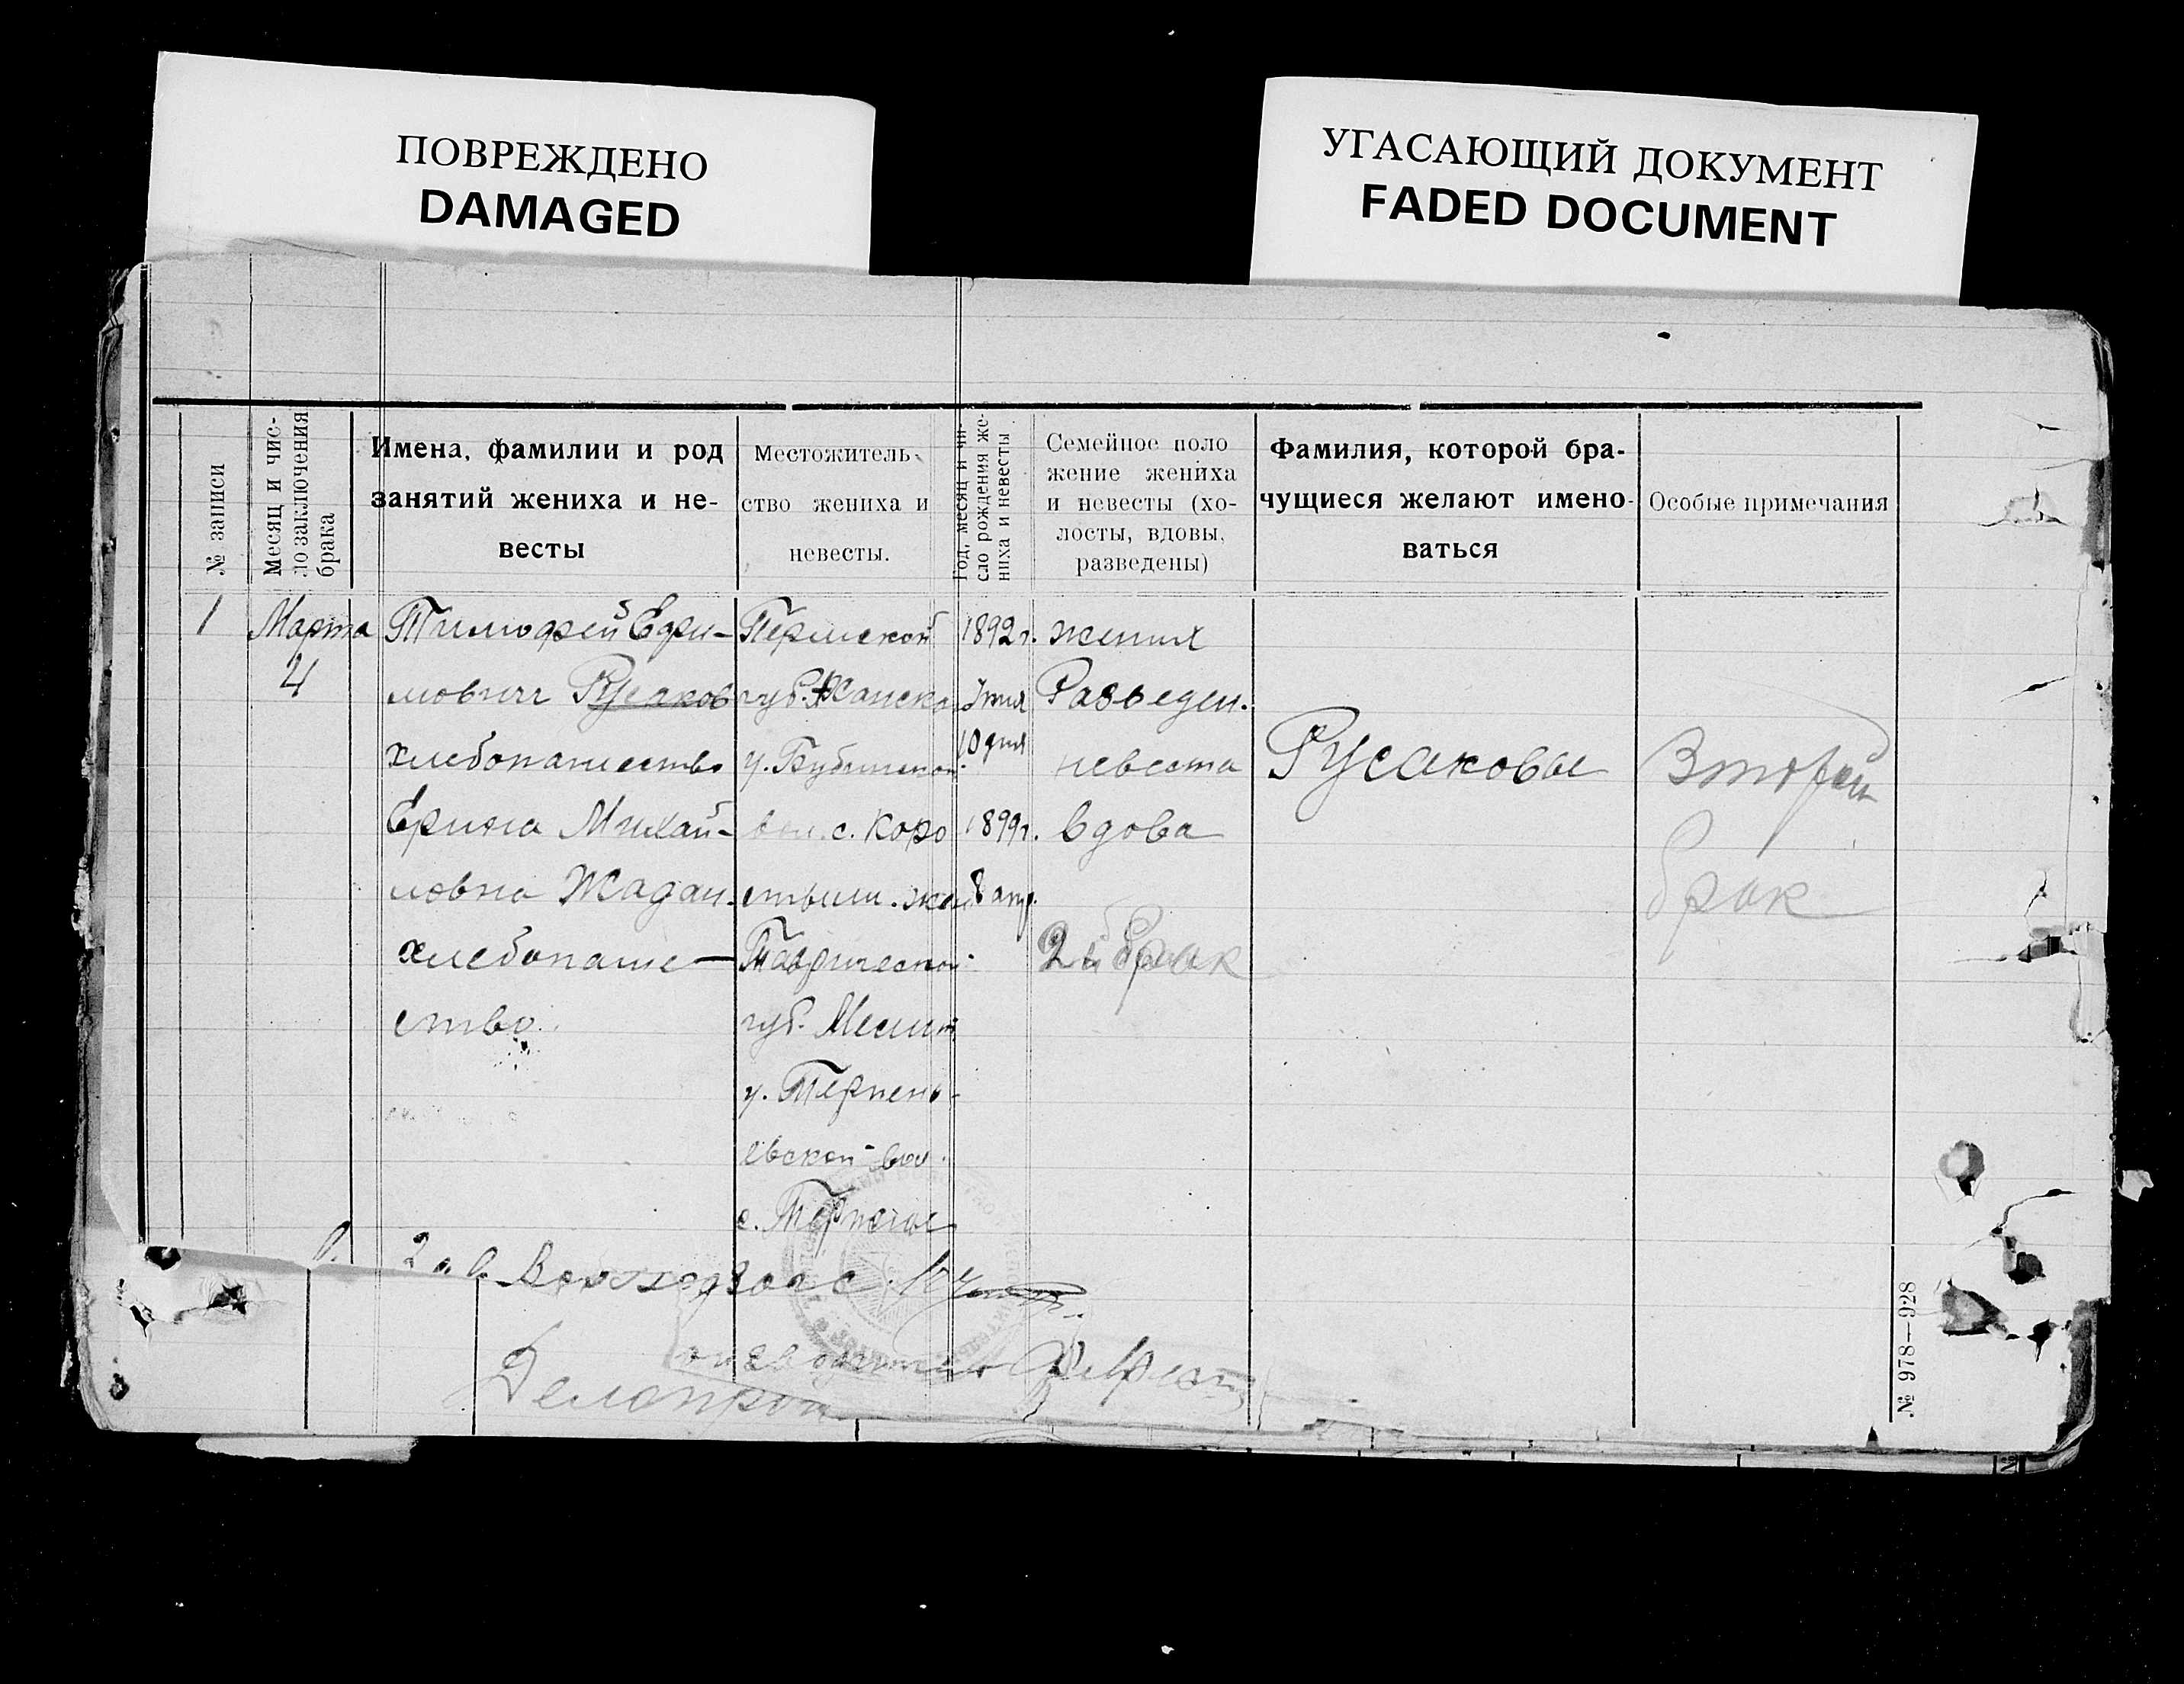 ПОВРЕЖДЕНО
DAMAGED
УГАСАЮЩИЙ ДОКУМЕНТ
FADED DOCUMENT
№ записи
Месяц и чис-
ло заключения
брака
Имена, фамилии и род
занятий жениха и не-
весты
Местожитель-
ство жениха и
невесты.
Год, месяц и чи-
сло рождения же-
ниха и невесты
Семейное поло
жение жениха
и невесты (хо-
лосты, вдовы,
разведены)
Фамилия, которой бра-
чущиеся желают имено-
ваться
Особые примечания
1
Марта
4
Тимофей Ефи-
мович Русаков
хлебопашество
Ерина Михай-
ловна Жадан
хлебопаше-
ство.
Пермской
губ.
у.
вол. с. Коро
Таврической
губ. Мелит
у. Терпень-
евской вол.
с. Терпение
1892 г.
10 дня
1899 г.
8 апр.
жених
Разведен.
невеста
вдова
2й брак
Русаковы
Второй
брак
Делопроизводитель
№ 978—928